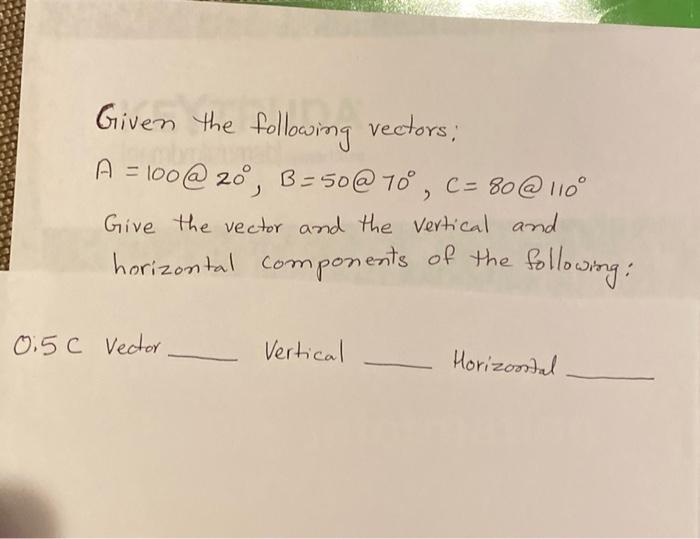 Given the following vectors:
A = 100@ 20°, B = 50@ 70°, C = 80@ 110°
Give the vector and the vertical and
horizontal components of the following:
0.5 C Vector ____ Vertical ____ Horizontal ____